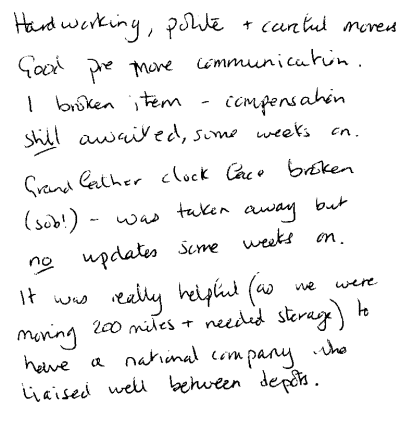 Hard working, polite + careful movers
Good pre move communication.
1 broken item - compensation
still awaited, some weeks on.
Grandfather clock face broken
(sob!) - was taken away but
no updates some weeks on.
It was really helpful (as we were
moving 200 miles + needed storage) to
have a national company who
liaised well between depots.